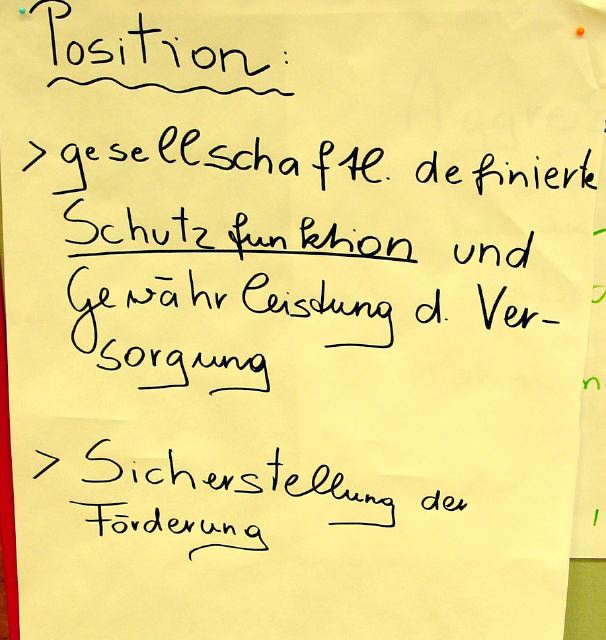 Position:
> gesellschaftl. definierte
Schutzfunktion und
Gewährleistung d. Ver-
sorgung
> Sicherstellung der
Förderung